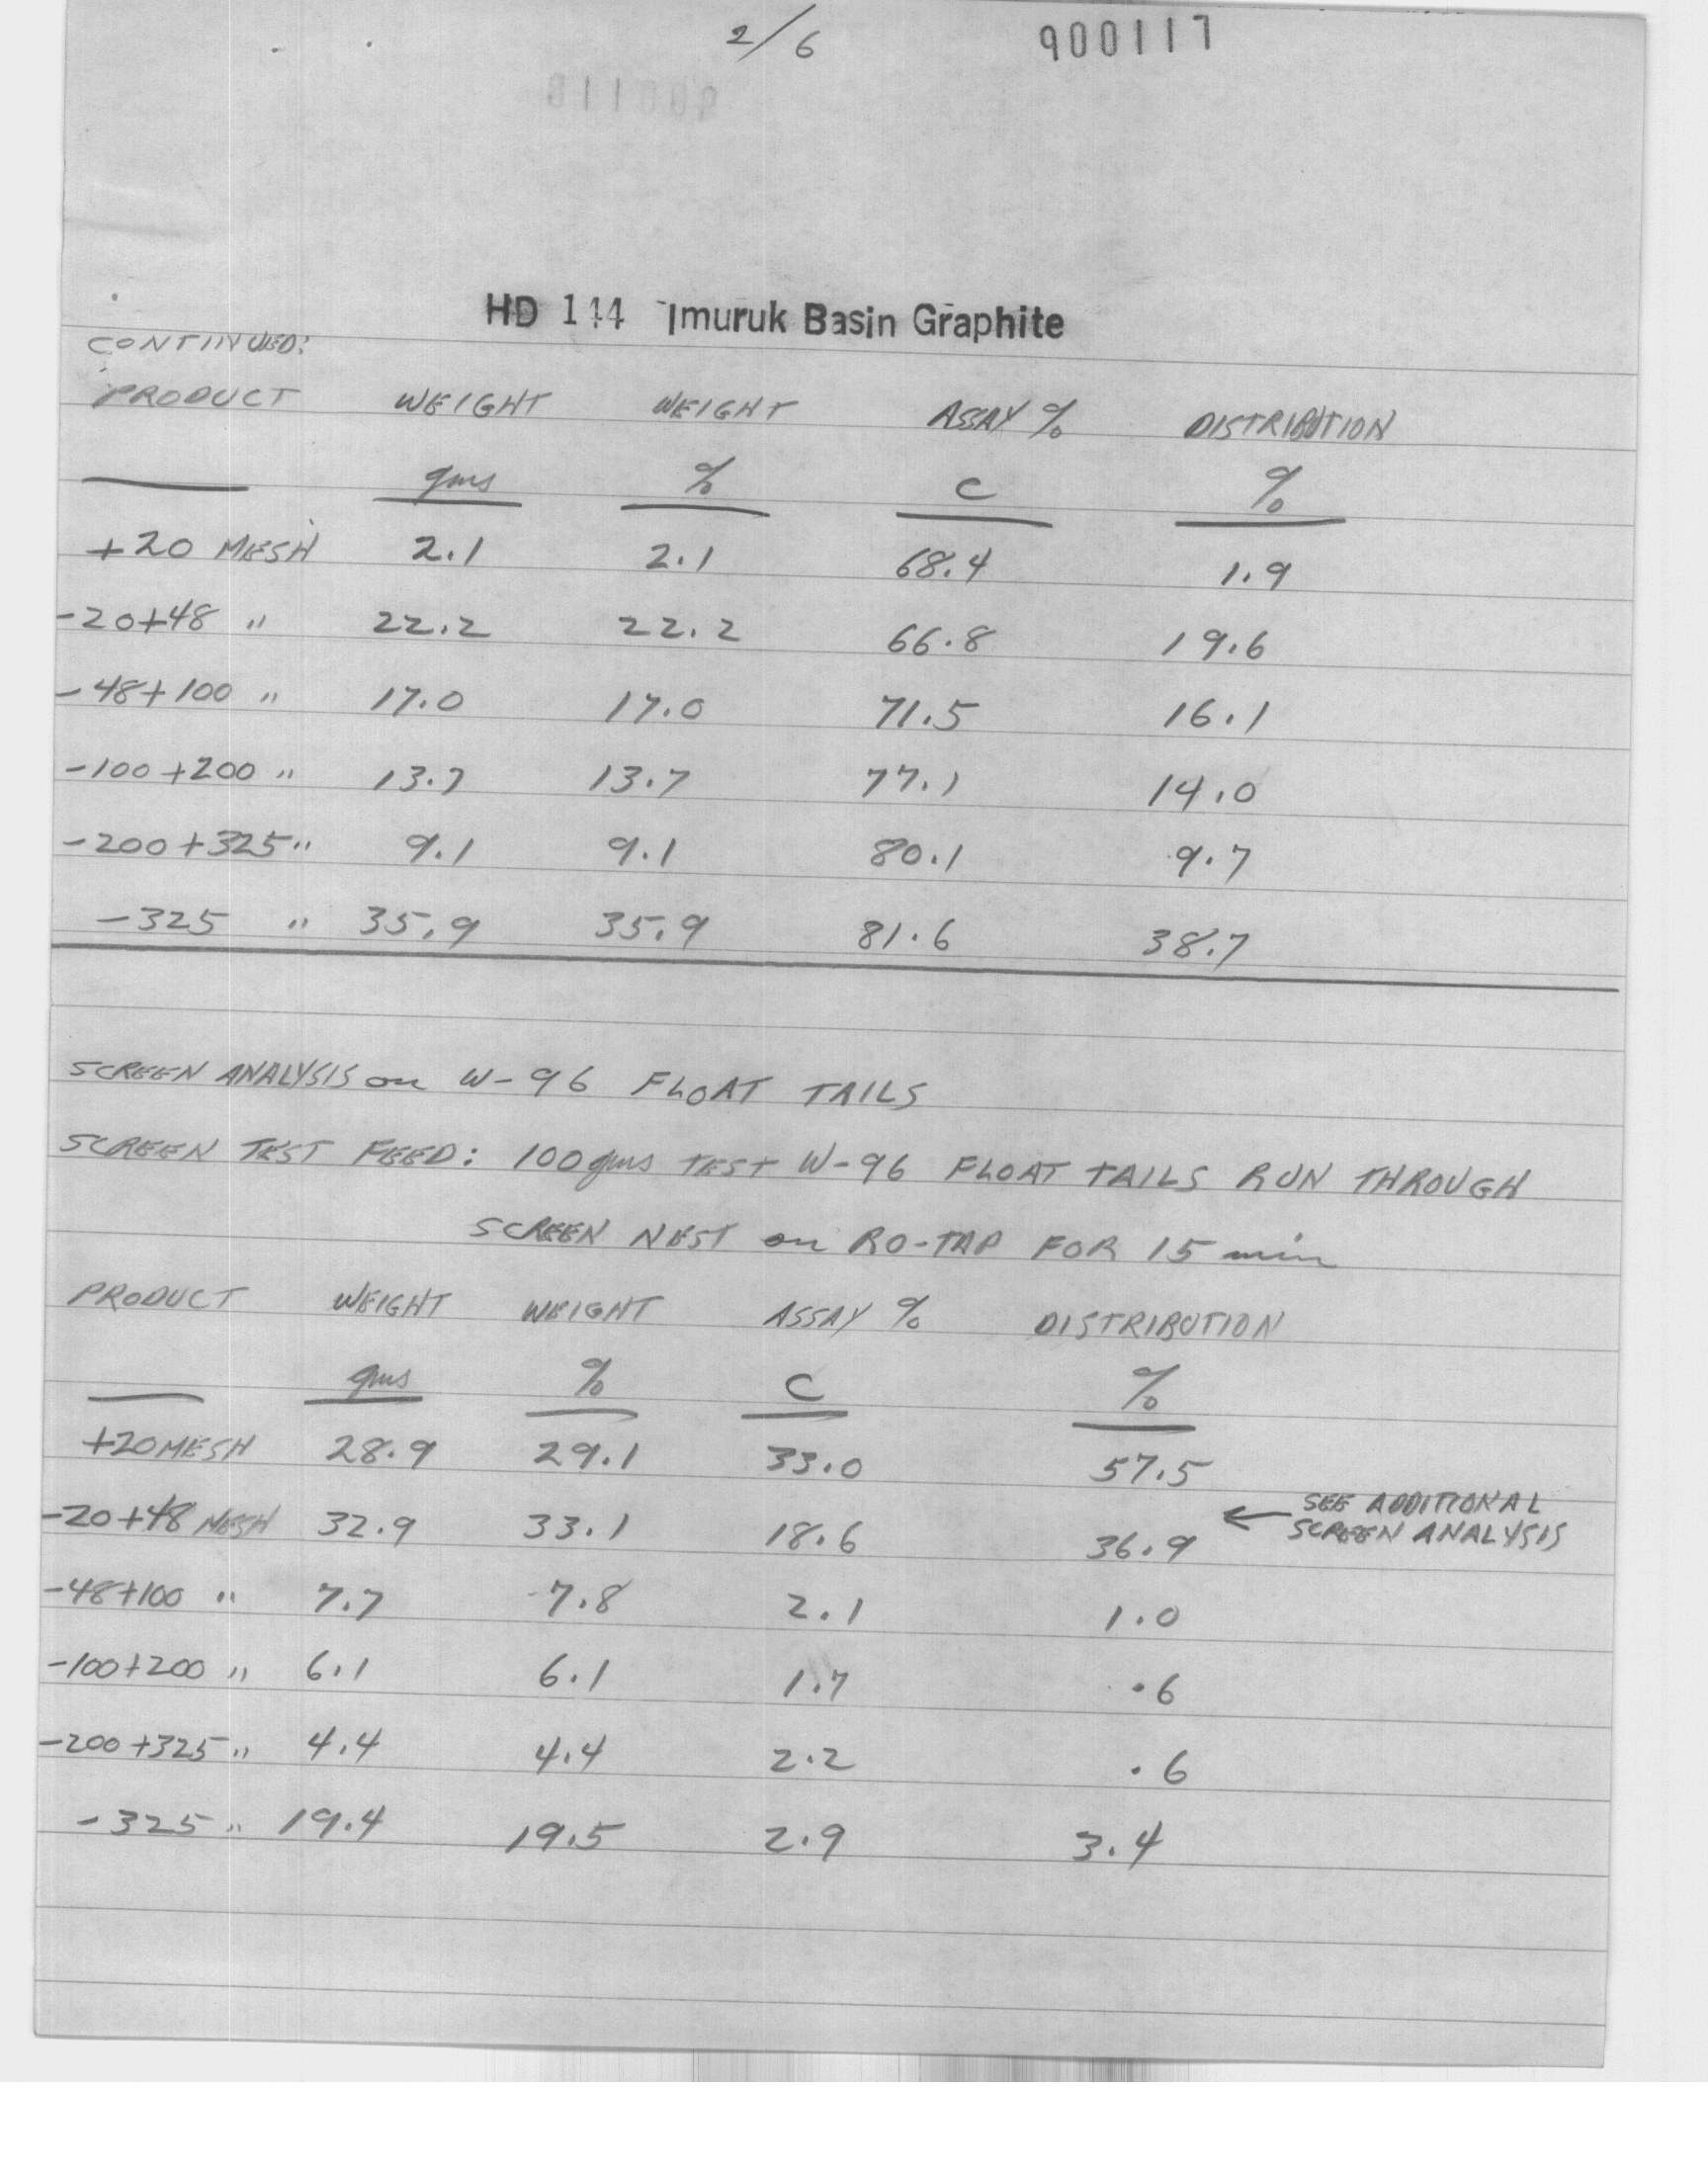 2/6 900117
HD 144 Imuruk Basin Graphite
CONTINUED:
PRODUCT WEIGHT WEIGHT ASSAY % DISTRIBUTION
gms % C %
+20 MESH 2.1 2.1 68.4 1.9
-20+48 " 22.2 22.2 66.8 19.6
-48+100 " 17.0 17.0 71.5 16.1
-100+200 " 13.7 13.7 77.1 14.0
-200+325 " 9.1 9.1 80.1 9.7
-325 " 35.9 35.9 81.6 38.7
SCREEN ANALYSIS on W-96 FLOAT TAILS
SCREEN TEST FEED: 100 gms TEST W-96 FLOAT TAILS RUN THROUGH
SCREEN NEST on RO-TAP FOR 15 min
PRODUCT WEIGHT WEIGHT ASSAY % DISTRIBUTION
gms % C %
+20 MESH 28.9 29.1 33.0 57.5
-20+48 MESH 32.9 33.1 18.6 36.9 ← SEE ADDITIONAL
SCREEN ANALYSIS
-48+100 " 7.7 7.8 2.1 1.0
-100+200 " 6.1 6.1 1.7 .6
-200+325 " 4.4 4.4 2.2 .6
-325 " 19.4 19.5 2.9 3.4